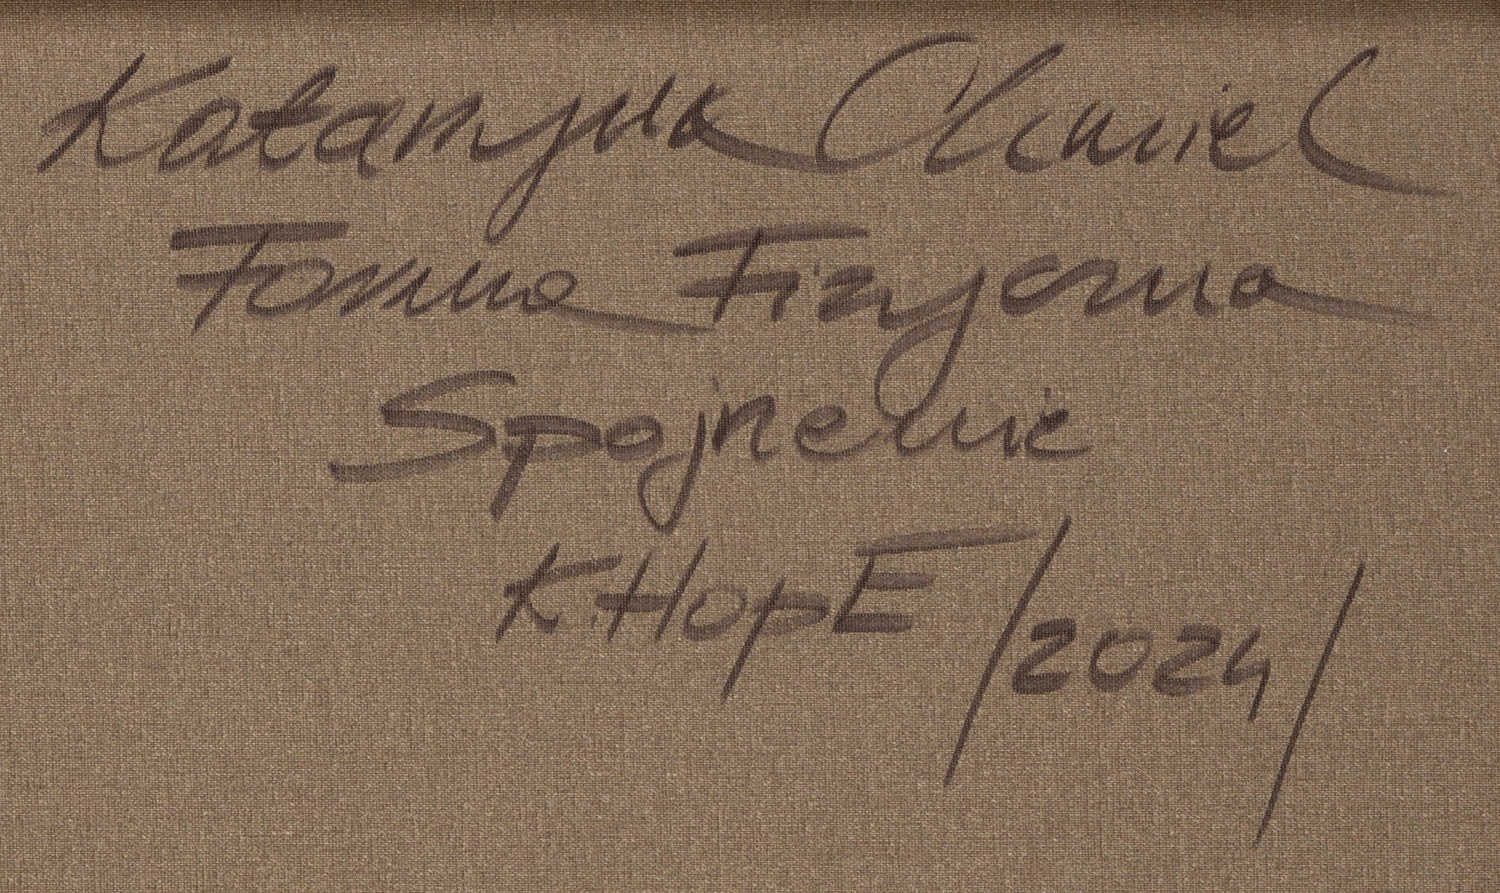 Katarzyna Chmiel
Forma Fizyczna
Spojrzenie
K.HopE /2024/